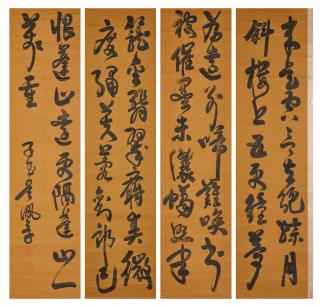 來是空言去絕蹤月
斜樓上五更鐘夢
為遠別啼難喚書
被催成墨未濃蠟照半
籠金翡翠麝熏微
度繡芙蓉劉郎已
恨蓬山遠更隔蓬山一
萬重
子玉吳佩孚